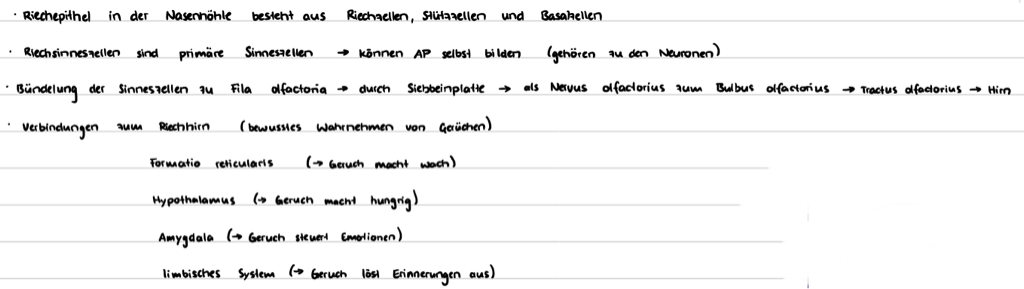 · Riechepithel in der Nasenhöhle besteht aus Riechzellen, Stützzellen und Basalzellen
· Riechsinneszellen sind primäre Sinneszellen → können AP selbst bilden (gehören zu den Neuronen)
· Bündelung der Sinneszellen zu Fila olfactoria → durch Siebbeinplatte → als Nervus olfactorius zum Bulbus olfactorius → Tractus olfactorius → Hirn
· Verbindungen zum Riechhirn (bewusstes Wahrnehmen von Gerüchen)
Formatio reticularis (→ Geruch macht wach)
Hypothalamus (→ Geruch macht hungrig)
Amygdala (→ Geruch steuert Emotionen)
limbisches System (→ Geruch löst Erinnerungen aus)